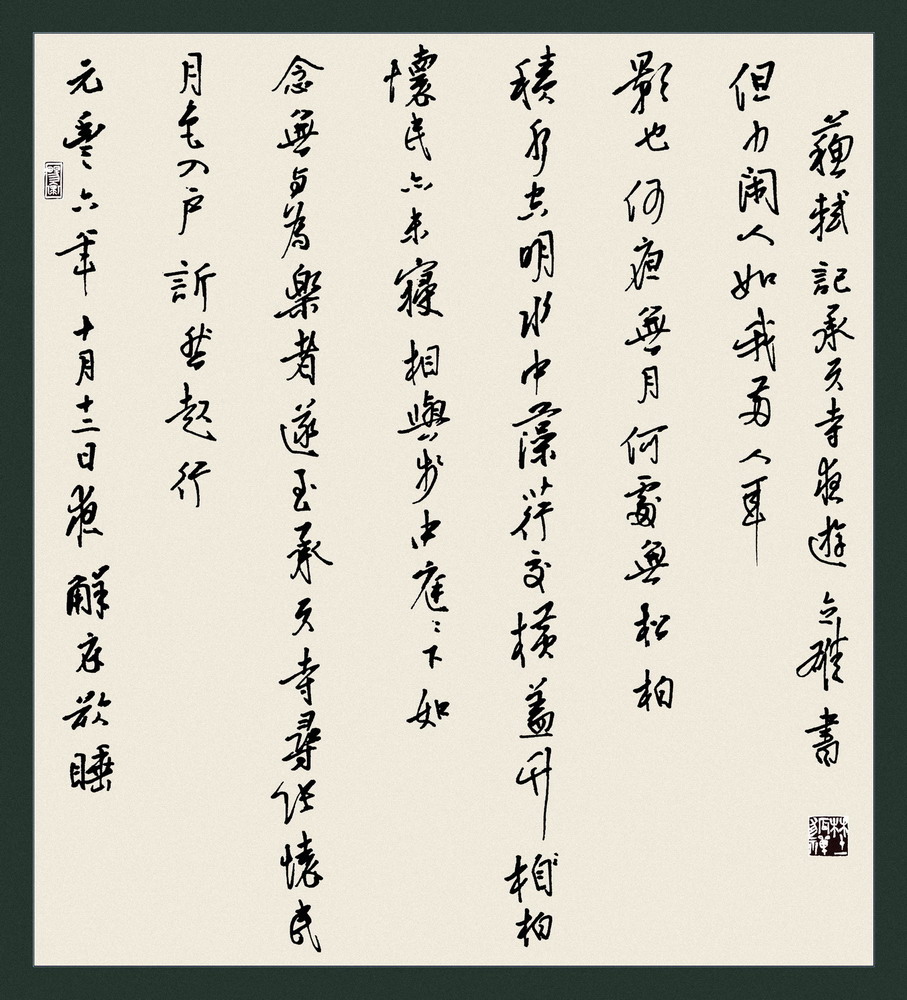 元豐六年十月十二日夜解衣欲睡
月色入户訢然起行
念無与為樂者遂至承天寺尋張懷民
懷民亦未寢相與步中庭々下如
積水空明水中藻荇交橫蓋竹相柏
影也何夜無月何處無松柏
但少閑人如我兩人耳
蘇軾記承天寺夜遊 書